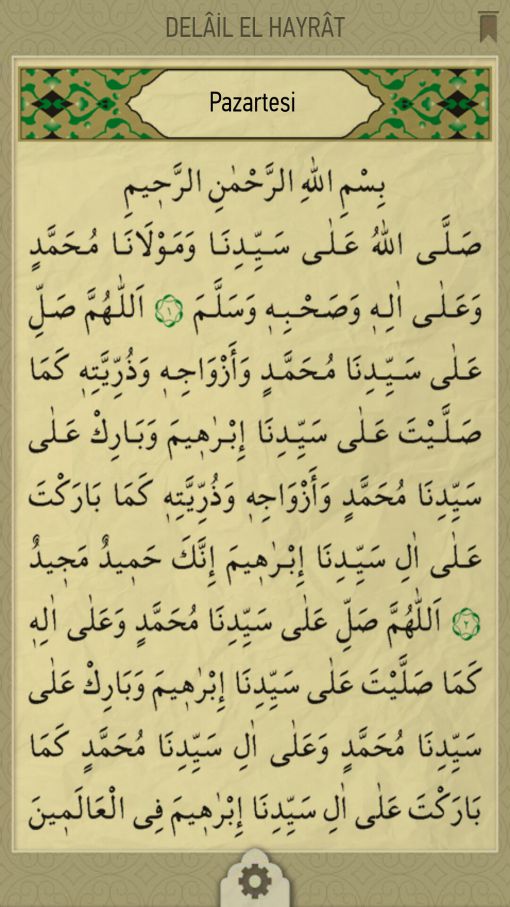 DELÂİL EL HAYRÂT
Pazartesi
بِسْمِ اللهِ الرَّحْمٰنِ الرَّحٖيمِ
صَلَّى اللهُ عَلٰى سَيِّدِنَا وَمَوْلَانَا مُحَمَّدٍ
وَعَلٰى اٰلِهٖ وَصَحْبِهٖ وَسَلَّمَ ١ اَللّٰهُمَّ صَلِّ
عَلٰى سَيِّدِنَا مُحَمَّدٍ وَأَزْوَاجِهٖ وَذُرِّيَّتِهٖ كَمَا
صَلَّيْتَ عَلٰى سَيِّدِنَا إِبْرٰهٖيمَ وَبَارِكْ عَلٰى
سَيِّدِنَا مُحَمَّدٍ وَأَزْوَاجِهٖ وَذُرِّيَّتِهٖ كَمَا بَارَكْتَ
عَلٰى اٰلِ سَيِّدِنَا إِبْرٰهٖيمَ إِنَّكَ حَمٖيدٌ مَجٖيدٌ
٢ اَللّٰهُمَّ صَلِّ عَلٰى سَيِّدِنَا مُحَمَّدٍ وَعَلٰى اٰلِهٖ
كَمَا صَلَّيْتَ عَلٰى سَيِّدِنَا إِبْرٰهٖيمَ وَبَارِكْ عَلٰى
سَيِّدِنَا مُحَمَّدٍ وَعَلٰى اٰلِ سَيِّدِنَا مُحَمَّدٍ كَمَا
بَارَكْتَ عَلٰى اٰلِ سَيِّدِنَا إِبْرٰهٖيمَ فِى الْعَالَمٖينَ